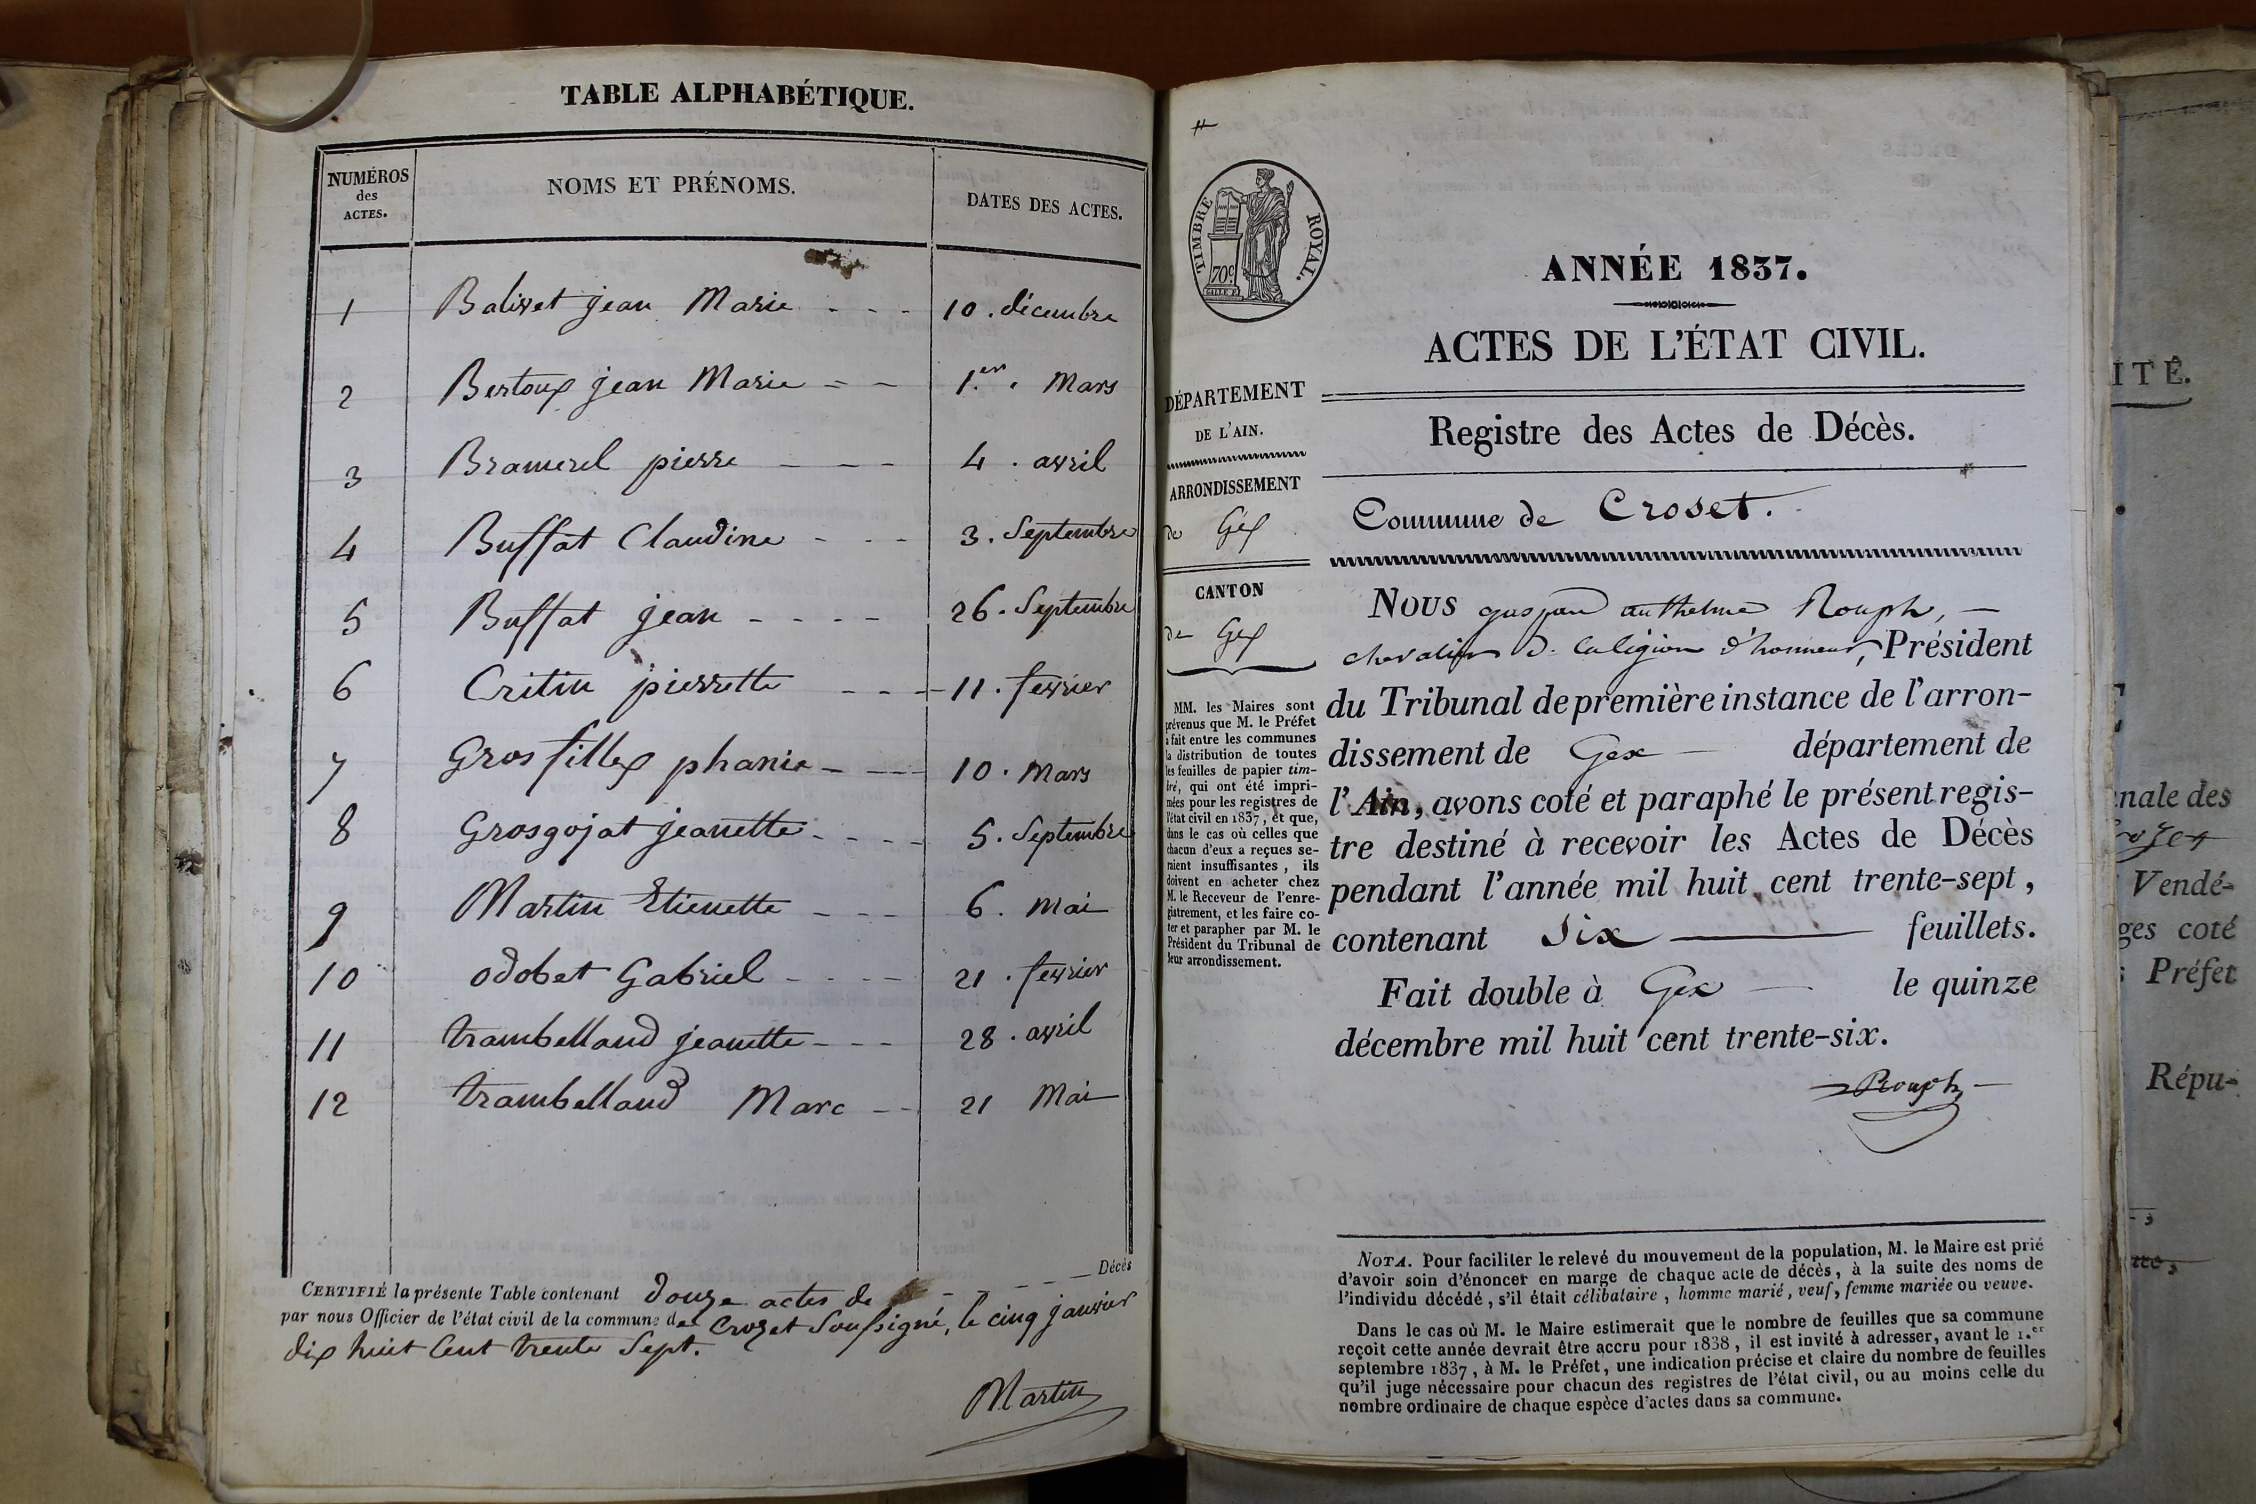 TABLE ALPHABÉTIQUE.
NUMÉROS des ACTES. NOMS ET PRÉNOMS. DATES DES ACTES.
1 Balivet jean Marie - - - 10. décembre
2 Bertoux jean Marie - - 1.er. Mars
3 Bramerel pierre - - - 4. avril
4 Buffat Claudine - - - 3. Septembre
5 Buffat jean - - - - 26. Septembre
6 Critin pierrette - - - 11. fevrier
7 Gros fillex phanie - - - 10. Mars
8 Grosgojat jeanette - - - - 5. Septembre
9 Martin Etienette - - - 6. Mai
10 odobet Gabriel - - - - 21. fevrier
11 trambelland jeanette - - - 28. avril
12 trambelland Marc - - 21 Mai
CERTIFIÉ la présente Table contenant douze actes de - - - - Décès
par nous Officier de l'état civil de la commune de Crozet Soussigné, le cinq janvier
dix huit Cent trente Sept.
Martin
TIMBRE ROYAL.
70c
ANNÉE 1837.
ACTES DE L'ÉTAT CIVIL.
Registre des Actes de Décès.
Commune de Croset.
DÉPARTEMENT
DE L'AIN.
ARRONDISSEMENT
de Gex
CANTON
de Gex
MM. les Maires sont
prévenus que M. le Préfet
a fait entre les communes
la distribution de toutes
les feuilles de papier tim-
bré, qui ont été impri-
mées pour les registres de
l'état civil en 1837, et que,
dans le cas où celles que
chacun d'eux a reçues se-
raient insuffisantes, ils
doivent en acheter chez
M. le Receveur de l'enre-
gistrement, et les faire co-
ter et parapher par M. le
Président du Tribunal de
leur arrondissement.
NOUS gaspard anthelme Rouph,
chevalier d. la légion d'honneur, Président
du Tribunal de première instance de l'arron-
dissement de Gex département de
l'Ain, avons coté et paraphé le présent regis-
tre destiné à recevoir les Actes de Décès
pendant l'année mil huit cent trente-sept,
contenant Six feuillets.
Fait double à Gex le quinze
décembre mil huit cent trente-six.
Rouph
NOTA. Pour faciliter le relevé du mouvement de la population, M. le Maire est prié
d'avoir soin d'énoncer en marge de chaque acte de décès, à la suite des noms de
l'individu décédé, s'il était célibataire, homme marié, veuf, femme mariée ou veuve.
Dans le cas où M. le Maire estimerait que le nombre de feuilles que sa commune
reçoit cette année devrait être accru pour 1838, il est invité à adresser, avant le 1.er
septembre 1837, à M. le Préfet, une indication précise et claire du nombre de feuilles
qu'il juge nécessaire pour chacun des registres de l'état civil, ou au moins celle du
nombre ordinaire de chaque espèce d'actes dans sa commune.
ITÉ.
nale des
Vendé-
ges coté
Préfet
Répu-